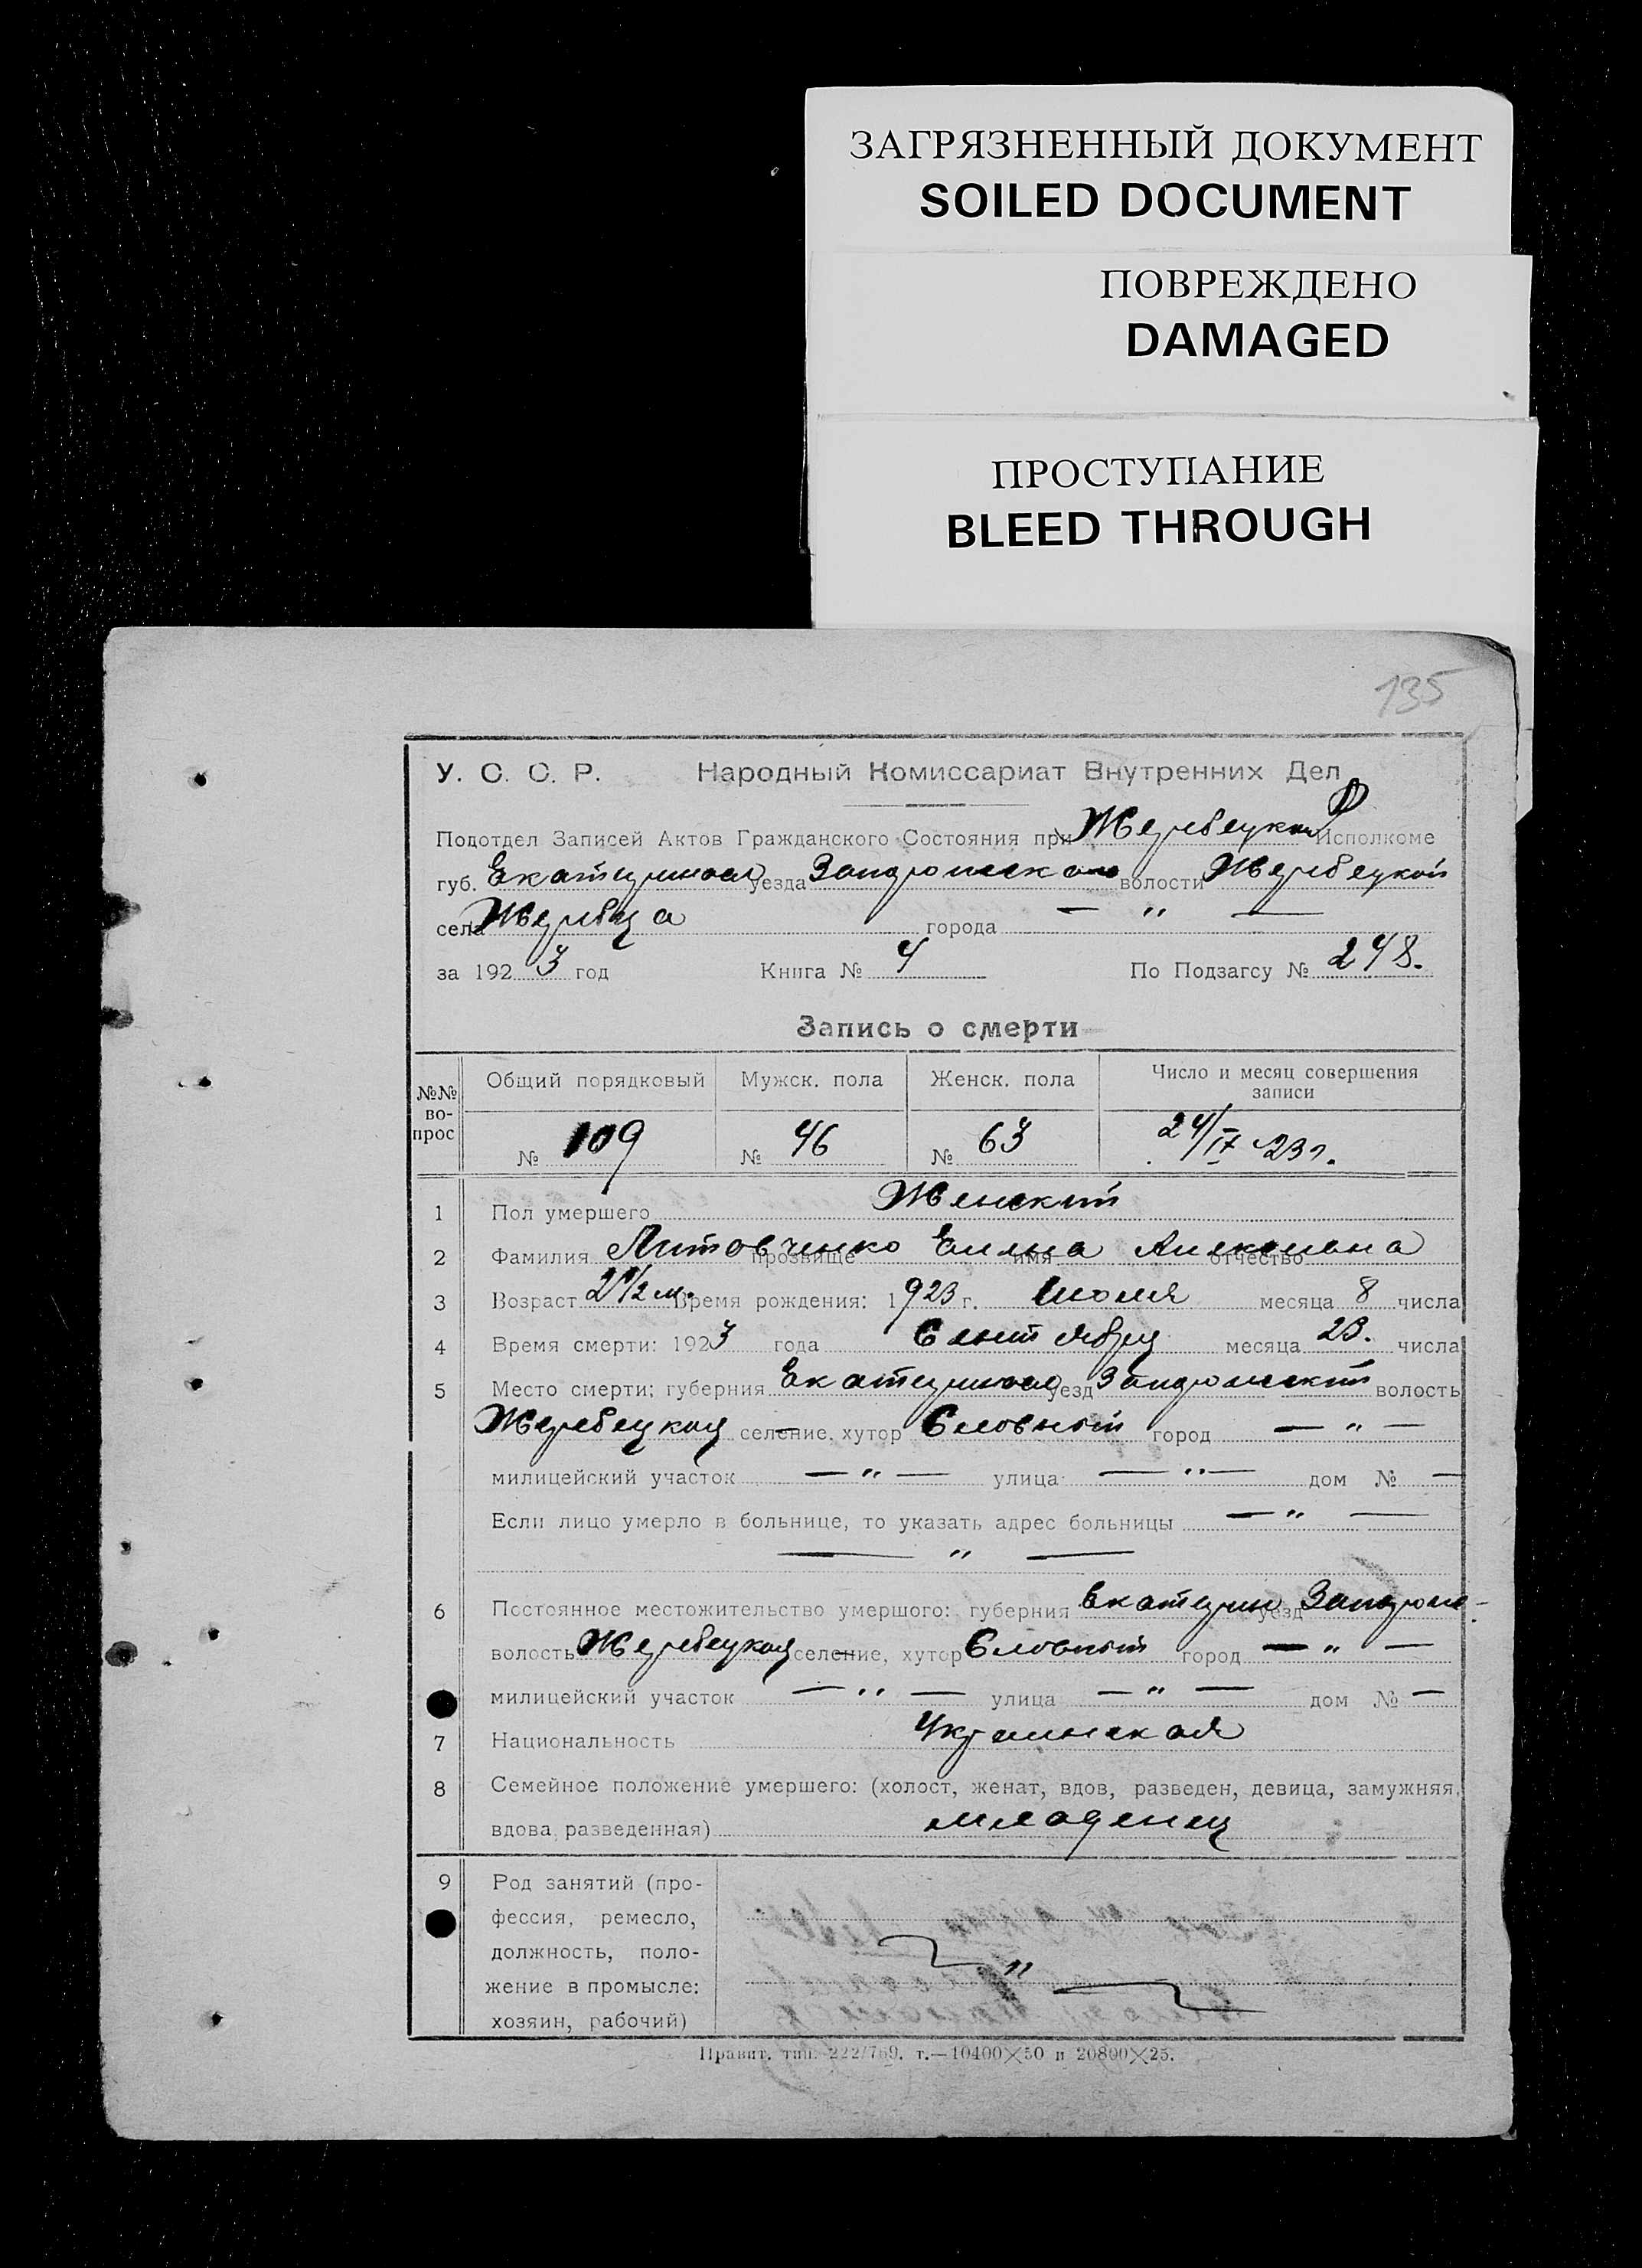 ЗАГРЯЗНЕННЫЙ ДОКУМЕНТ
SOILED DOCUMENT
ПОВРЕЖДЕНО
DAMAGED
ПРОСТУПАНИЕ
BLEED THROUGH
135
У. С. С. Р. Народный Комиссариат Внутренних Дел
Подотдел Записей Актов Гражданского Состояния при Исполкоме
губ. Екатериносл уезда Запорожского волости Жеребецкой
села Жеребца города — " —
за 1923 год Книга № 4 По Подзагсу № 248.
Запись о смерти
№№ вопрос Общий порядковый Мужск. пола Женск. пола Число и месяц совершения записи
№ 109 № 46 № 63 24/IX 23 г.
1 Пол умершего Женский
2 Фамилия Литовченко прозвище Елена имя отчество
3 Возраст 2 1/2 м. Время рождения: 1923 г. Июля месяца 8 числа
4 Время смерти: 1923 года Сентября месяца 23. числа
5 Место смерти: губерния Екатериносл уезд Запорожский волость
Жеребецкая селение, хутор город — " —
милицейский участок — " — улица — " — дом № —
Если лицо умерло в больнице, то указать адрес больницы — " —
— " —
6 Постоянное местожительство умершего: губерния Екатерин уезд Запорож-
волость Жеребецкая селение, хутор город — " —
милицейский участок — " — улица — " — дом № —
7 Национальность Украинская
8 Семейное положение умершего: (холост, женат, вдов, разведен, девица, замужняя,
вдова, разведенная) младенец
9 Род занятий (про-
фессия, ремесло,
должность, поло- — " —
жение в промысле:
хозяин, рабочий)
Правит. тип. 222/769. т.—10400×50 и 20800×25.